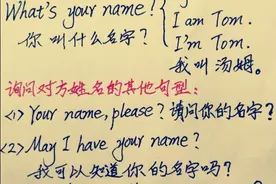 What's your name?
你叫什么名字?
I am Tom.
I'm Tom.
我叫汤姆。
询问对方姓名的其他句型:
<1> Your name, please? 请问你的名字?
<2> May I have your name?
我可以知道你的名字吗?